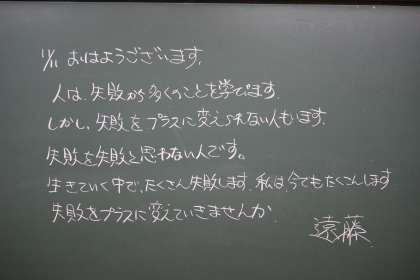 11/11 おはようございます。
人は、失敗から多くのことを学びます。
しかし、失敗をプラスに変えられない人もいます。
失敗を失敗と思わない人です。
生きていく中で、たくさん失敗します。私は、今でもたくさんします
失敗をプラスに変えていきませんか
遠藤